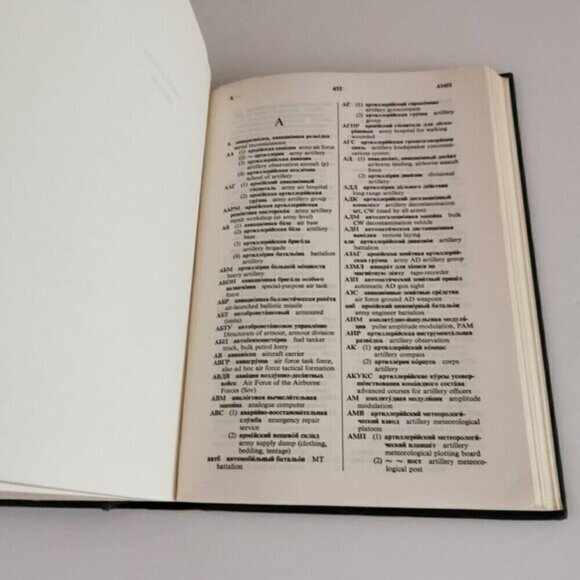 А
453
АМП
А
А авиаразведка, авиационная разведка
aerial reconnaissance
АА (1) армейская авиация army air force
(2) ~ артиллерия army artillery
(3) артиллерийская авиация
artillery observation aircraft (p)
(4) артиллерийская академия
school of artillery
ААГ (1) армейский авиационный
госпиталь army air hospital
(2) армейская артиллерийская
группа army artillery group
ААРМ армейская артиллерийская
ремонтная мастерская army artillery
repair workshop (at army level)
АБ (1) авиационная база air base
(2) артиллерийская база artillery
base
(3) артиллерийская бригада
artillery brigade
(4) артиллерия батальона battalion
artillery
АБМ артиллерия большой мощности
heavy artillery
АБОН авиационная бригада особого
назначения special-purpose air task
force
АБР авиационная баллистическая ракета
air-launched ballistic missile
АБТ автобронетанковый armoured
(units)
АБТУ автобронетанковое управление
Directorate of armour, armour division
АБЦ автобензоцистерна fuel tanker
truck, bulk petrol lorry
АВ авианосец aircraft carrier
АВГР авиагруппа air force task force,
also ad hoc air force tactical formation
АВДВ авиация воздушно-десантных
войск Air Force of the Airborne
Forces (Sov)
АВМ аналоговая вычислительная
машина analogue computer
АВС (1) аварийно-восстановительная
служба emergency repair
service
(2) армейский вещевой склад
army supply dump (clothing,
bedding, tentage)
автб автомобильный батальон MT
battalion
АГ (1) артиллерийский гирокомпас
artillery gyrocompass
(2) артиллерийская группа artillery
group
АГЛР армейский госпиталь для легко-
раненных army hospital for walking
wounded
АГС артиллерийская громкоговорящая
связь artillery loudspeaker communi-
cations system
АД (1) авиадесант, авиационный десант
airborne landing, airborne assault
force
(2) артиллерия дивизии divisional
artillery
АДД артиллерия дальнего действия
long-range artillery
АДК артиллерийский дегазационный
комплект artillery decontamination
set, CW (used by all arms)
АДМ автодегазационная машина bulk
CW decontamination vehicle
АДН автоматическая дистанционная
наводка remote laying
адн артиллерийский дивизион artillery
battalion
АЗАГ армейская зенитная артиллерий-
ская группа army AD artillery group
АЗМЛ аппарат для записи на
магнитную ленту tape-recorder
АЗП автоматический зенитный прицел
automatic AD gun sight
АЗС авиационные зенитные средства
air force ground AD weapons
аиб армейский инженерный батальон
army engineer battalion
АИМ амплитудно-импульсная модуля-
ция pulse amplitude modulation, PAM
АИР артиллерийская инструментальная
разведка artillery observation
АК (1) артиллерийский компас
artillery compass
(2) артиллерия корпуса corps
artillery
АКУКС артиллерийские курсы усовер-
шенствования командного состава
advanced courses for artillery officers
АМ амплитудная модуляция amplitude
modulation
АМВ артиллерийский метеорологи-
ческий взвод artillery meteorological
platoon
АМП (1) артиллерийский метеорологи-
ческий планшет artillery
meteorological plotting board
(2) ~ ~ пост artillery meteoro-
logical post